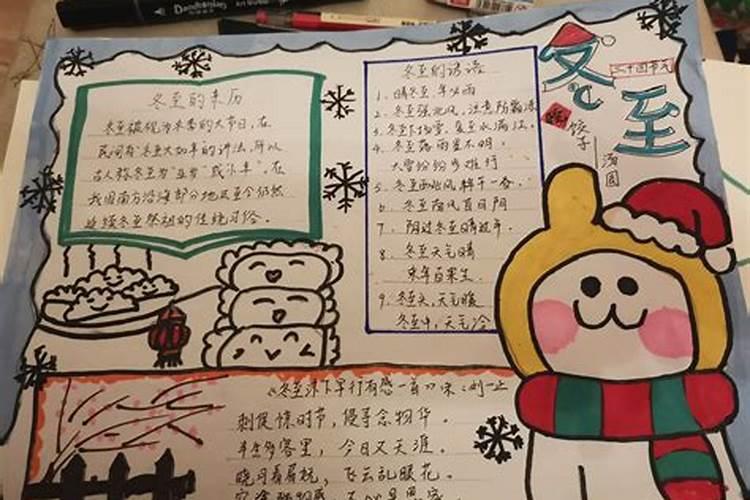 冬至
二十四节气
饺子
汤圆
冬至的来历
冬至被视为冬季的大节日,在
民间有"冬至大如年"的讲法,所以
古人称冬至为"亚岁"或"小年"。在
我国南方沿海部分地区至今仍然
延续冬至祭祖的传统习俗。
冬至的谚语
1、晴冬至,年必雨
2、冬至强北风,注意防霜冻
3、冬至下场雪,夏至水满江。
4、冬至落雨星不明,
大雪纷纷步难行
5、冬至西北风,
6、冬至南风百日阴
7、阴过冬至晴过年。
8、冬至天气晴
来年百果生。
9、冬至头,天气暖
冬至中,天气冷
《冬至浃下旱行有感一首》宋:刘一止
刺促惊时节,侵寻念物华。
客里,今日又天涯。
晓月看屋,飞云乱眼花。